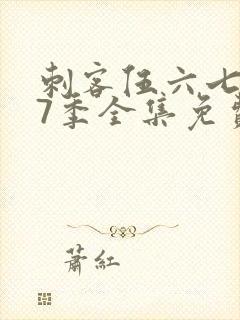 刺客伍六七
7季全集免费
萧红